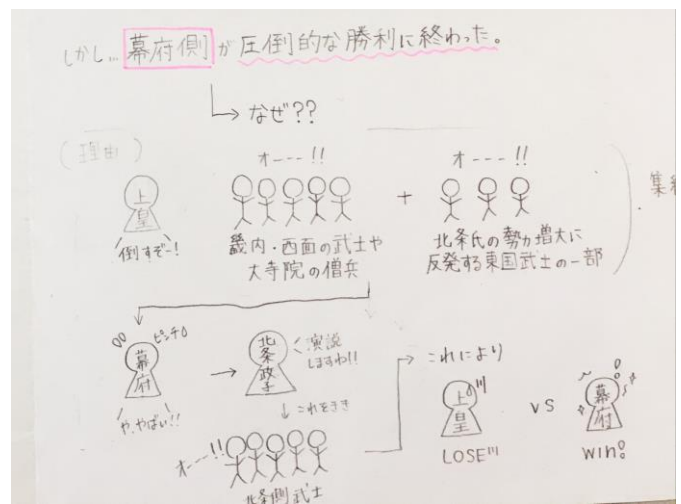 しかし… 幕府側が圧倒的な勝利に終わった。
なぜ??
(理由)
上皇
倒すぞー!
オ---!!
畿内・西面の武士や
大寺院の僧兵
+
オ---!!
北条氏の勢力増大に
反発する東国武士の一部
幕府
ピンチ
や、やばい!!
北条政子
演説
しますわ!!
これをきき
オ---!!
北条側武士
これにより
上皇
LOSE
VS
幕府
win